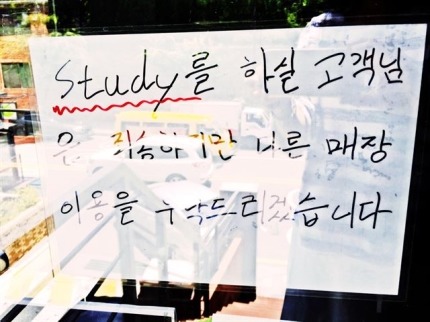 Study를 하실 고객님
은 죄송하지만 다른 매장
이용을 부탁드리겠습니다